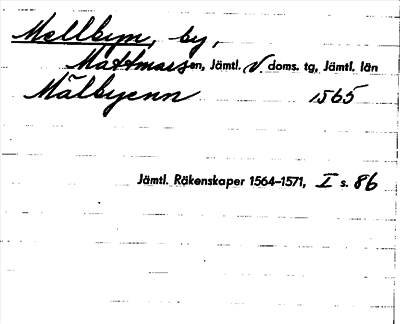 Mellbyn, by,
Mattmarsen, Jämtl. V. doms. tg, Jämtl. län
Mälbyenn 1565
Jämtl. Räkenskaper 1564–1571, I s. 86